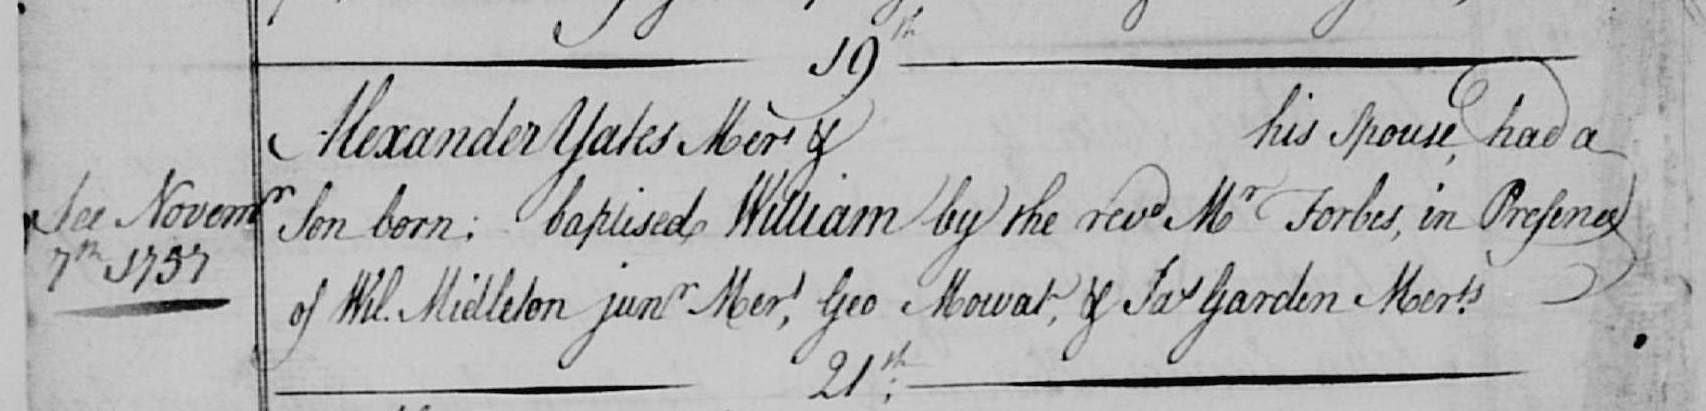 19th
Alexander Yates Mert & his Spouse, had a
See Novemr
7th 1757
Son born; baptised William by the revd Mr Forbes, in Presence
of Wil. Midleton junr Mert, Geo Mowat, & Jas Garden Merts
21th;